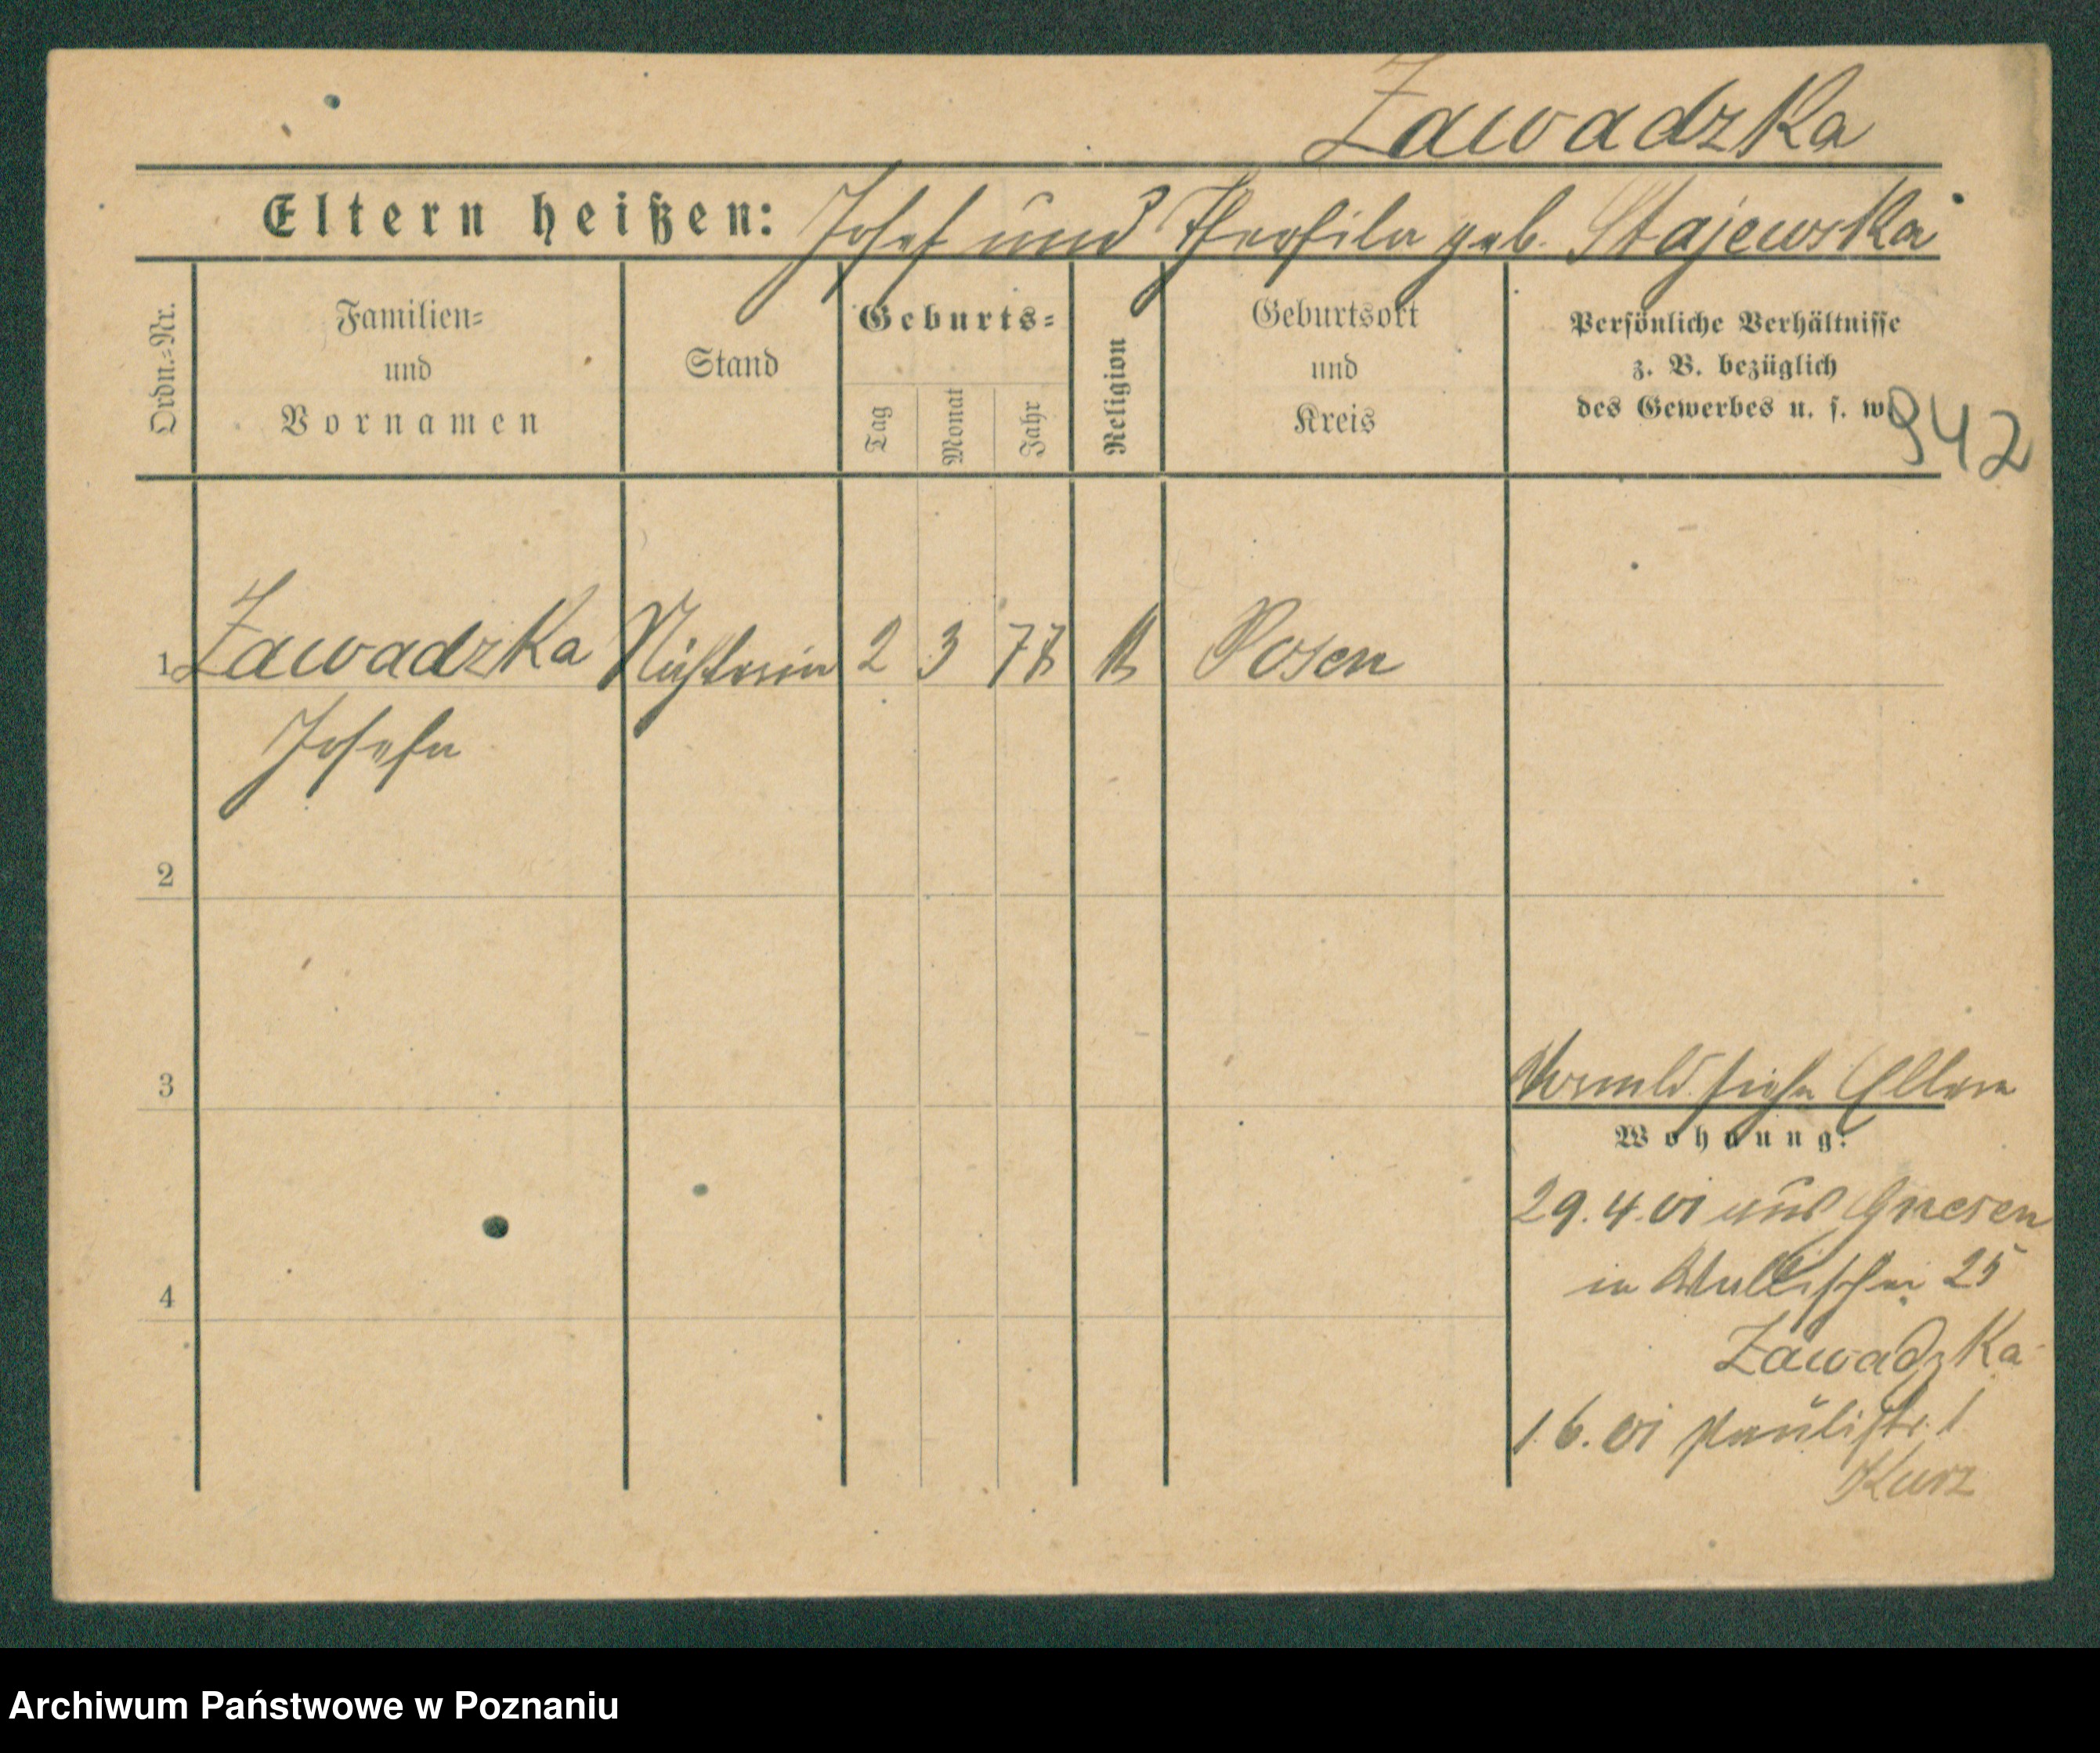 Zawadzka
Eltern heißen: Josef und Theofila geb. Stajewska
Ordn.=Nr.
Familien=
und
Vornamen
Stand
Geburts=
Tag
Monat
Jahr
Religion
Geburtsort
und
Kreis
Persönliche Verhältnisse
z. B. bezüglich
des Gewerbes u. s. w.
942
1 Zawadzka Nähterin 2 3 78 k Posen
Josefa
2
3
Vormld. siehe Eltern
Wohnung:
29.4.01 aus Gnesen
4
in Wallischei 25
Zawadzka
1.6.01 Paulistr. 1
Kurz
Archiwum Państwowe w Poznaniu